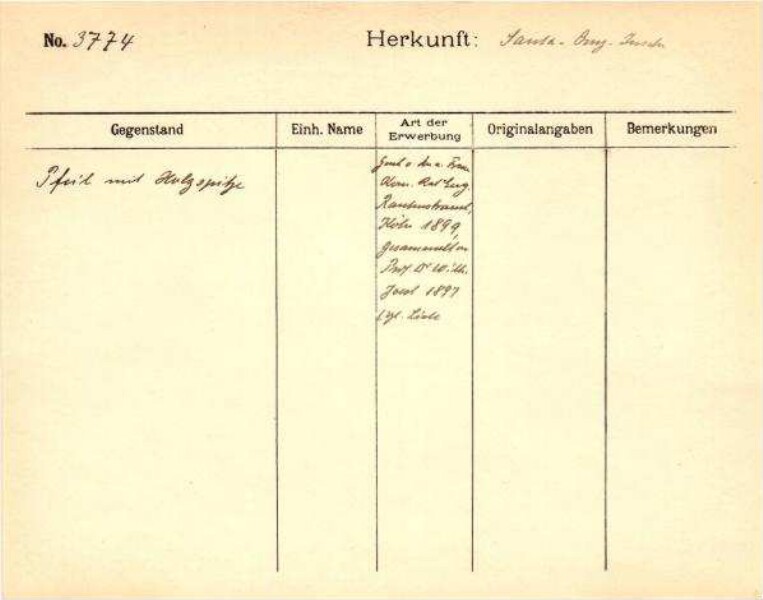 No. 3774 Herkunft: Santa-Cruz-Inseln
Gegenstand
Einh. Name
Art der
Erwerbung
Originalangaben
Bemerkungen
Pfeil mit Holzspitze
Frau
Rautenstrauch,
Köln 1899,
gesammelt v.
Prof. Dr Wilh.
Joest 1897
vgl. Liste